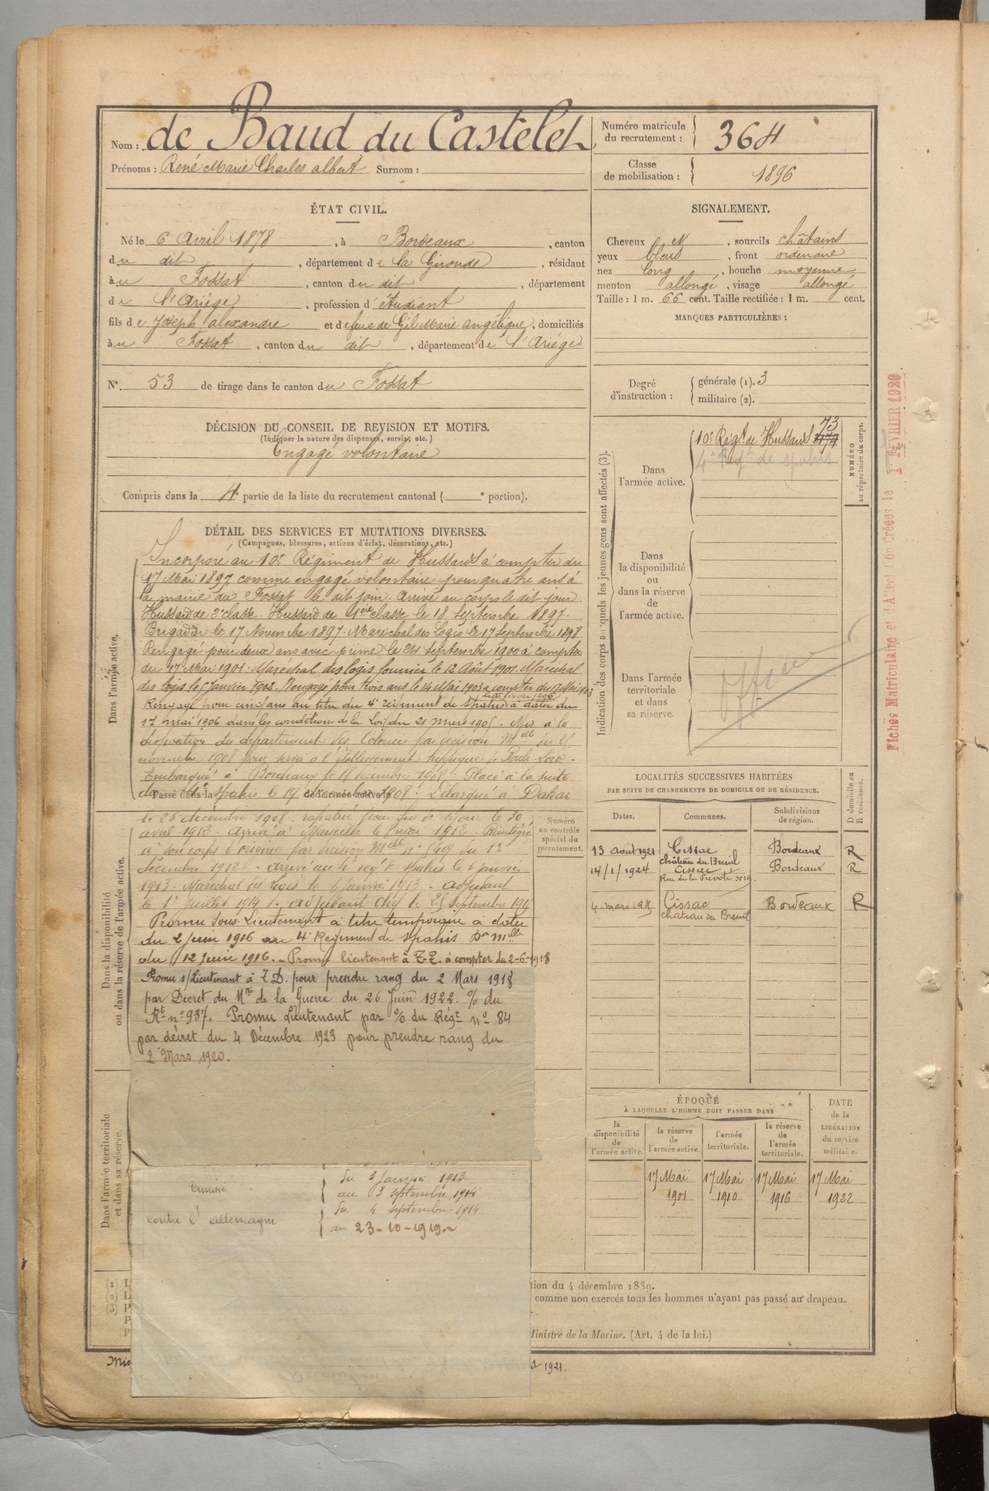 Nom : de Baud du Castelet
Prénoms : René Marie Charles albert Surnom :
Numéro matricule du recrutement : 364
Classe de mobilisation : 1896
ÉTAT CIVIL.
Né le 6 Avril 1878, à Bordeaux, canton
du dit, département de la Gironde, résidant
à u Fossat, canton du dit, département
de l'Ariège, profession d'étudiant
fils de Joseph alexandre et de feue de Gil Marie angélique, domiciliés
à u Fossat, canton du dit, département de l'Ariège
N° 53 de tirage dans le canton du Fossat
DÉCISION DU CONSEIL DE REVISION ET MOTIFS.
(Indiquer la nature des dispenses, sursis, etc.)
Engagé volontaire
Compris dans la 4 partie de la liste du recrutement cantonal ( ° portion).
SIGNALEMENT.
Cheveux ch N, sourcils châtains
yeux bleus, front ordinaire
nez long, bouche moyenne
menton allongé, visage allongé
Taille : 1 m. 66 cent. Taille rectifiée : 1 m. cent.
MARQUES PARTICULIÈRES :
Degré d'instruction : générale (1). 3
militaire (2).
Indication des corps auxquels les jeunes gens sont affectés (3).
Dans l'armée active.
10e Régt de Hussards 73
4e Régt de spahis
NUMÉRO au répertoire du corps.
Dans la disponibilité ou dans la réserve de l'armée active.
Dans l'armée territoriale et dans sa réserve.
Fiches Matriculaire et d'Affectation Créées le 1er FÉVRIER 1920
DÉTAIL DES SERVICES ET MUTATIONS DIVERSES.
(Campagnes, blessures, actions d'éclat, décorations, etc.)
Dans l'armée active.
Incorporé au 10e Régiment de Hussards à compter du
17 Mai 1897 comme engagé volontaire pour quatre ans à
la mairie du Fossat le dit jour. Arrivé au corps le dit jour.
Hussard de 2e classe. Hussard de 1ère classe le 18 Septembre 1897.
Brigadier le 17 Novembre 1897. Maréchal des Logis le 17 Septembre 1898.
Rengagé pour deux ans avec prime le 24 Septembre 1900 à compter
du 17 Mai 1901. Maréchal des logis fourrier le 12 Août 1901. Maréchal
des logis le 5 Janvier 1903. Rengagé pour trois ans le 14 Mai 1903 à compter du 17 Mai 1903
Rengagé pour cinq ans au titre du 4e régiment de Spahis à dater du
17 mai 1906 dans les conditions de la Loi du 21 mars 1905. Mis à la
disposition du département des Colonies par décision Mlle du 25
novembre 1908 pour servir à l'établissement hippique de Haute-Loro.
Embarqué à Bordeaux le 18 décembre 1908. Placé à la suite
du 4e Spahis le 19 1908. Débarqué à Dakar
Passé dans la de l'armée active le
le 26 décembre 1908. rapatrié pour fin de séjour le 20
avril 1912. Arrivé à Marseille le 1912. Réintégré
à son corps d'origine par décision Mlle du 13
décembre 1912. Arrivé au 4e régt de spahis le 6 janvier
1913. Maréchal des logis le 6 Janvier 1913. adjudant
le 1er Juillet 1914. adjudant chef le 25 septembre 1915
Promu Sous-Lieutenant à titre temporaire à dater
du 2 Juin 1916 au 4e Régiment de Spahis Dn Mlle
du 12 Juin 1916. Promu lieutenant à T.T. à compter du 2-6-1918
Promu s/Lieutenant à T.D. pour prendre rang du 2 Mars 1918
par Décret du Mre de la Guerre du 26 Juin 1922. % du
Rt n° 937. Promu Lieutenant par % du Régt n° 84
par décret du 4 Décembre 1923 pour prendre rang du
2 Mars 1920.
Numéro au contrôle spécial du recrutement.
Dans la disponibilité ou dans la réserve de l'armée active.
Dans l'armée territoriale et dans sa réserve.
Tunisie
du 5 Janvier 1913
au 3 septembre 1914
contre l'allemagne
du 4 septembre 1914
au 23-10-1919
LOCALITÉS SUCCESSIVES HABITÉES
PAR SUITE DE CHANGEMENTS DE DOMICILE OU DE RÉSIDENCE.
Dates. Communes. Subdivisions de région. D domicile ou R résidence.
13 août 1921 Cissac château du Breuil Bordeaux R
14/1/1924 Cissac Bordeaux R
Cissac château du Breuil Bordeaux R
ÉPOQUE
À LAQUELLE L'HOMME DOIT PASSER DANS
la disponibilité de l'armée active.
la réserve de l'armée active.
l'armée territoriale.
la réserve de l'armée territoriale.
DATE de la LIBÉRATION du service militaire.
17 Mai 1901
17 Mai 1910
17 Mai 1916
17 Mai 1922
tion du 4 décembre 1889.
comme non exercés tous les hommes n'ayant pas passé au drapeau.
Ministre de la Marine. (Art. 4 de la loi.)
1921.